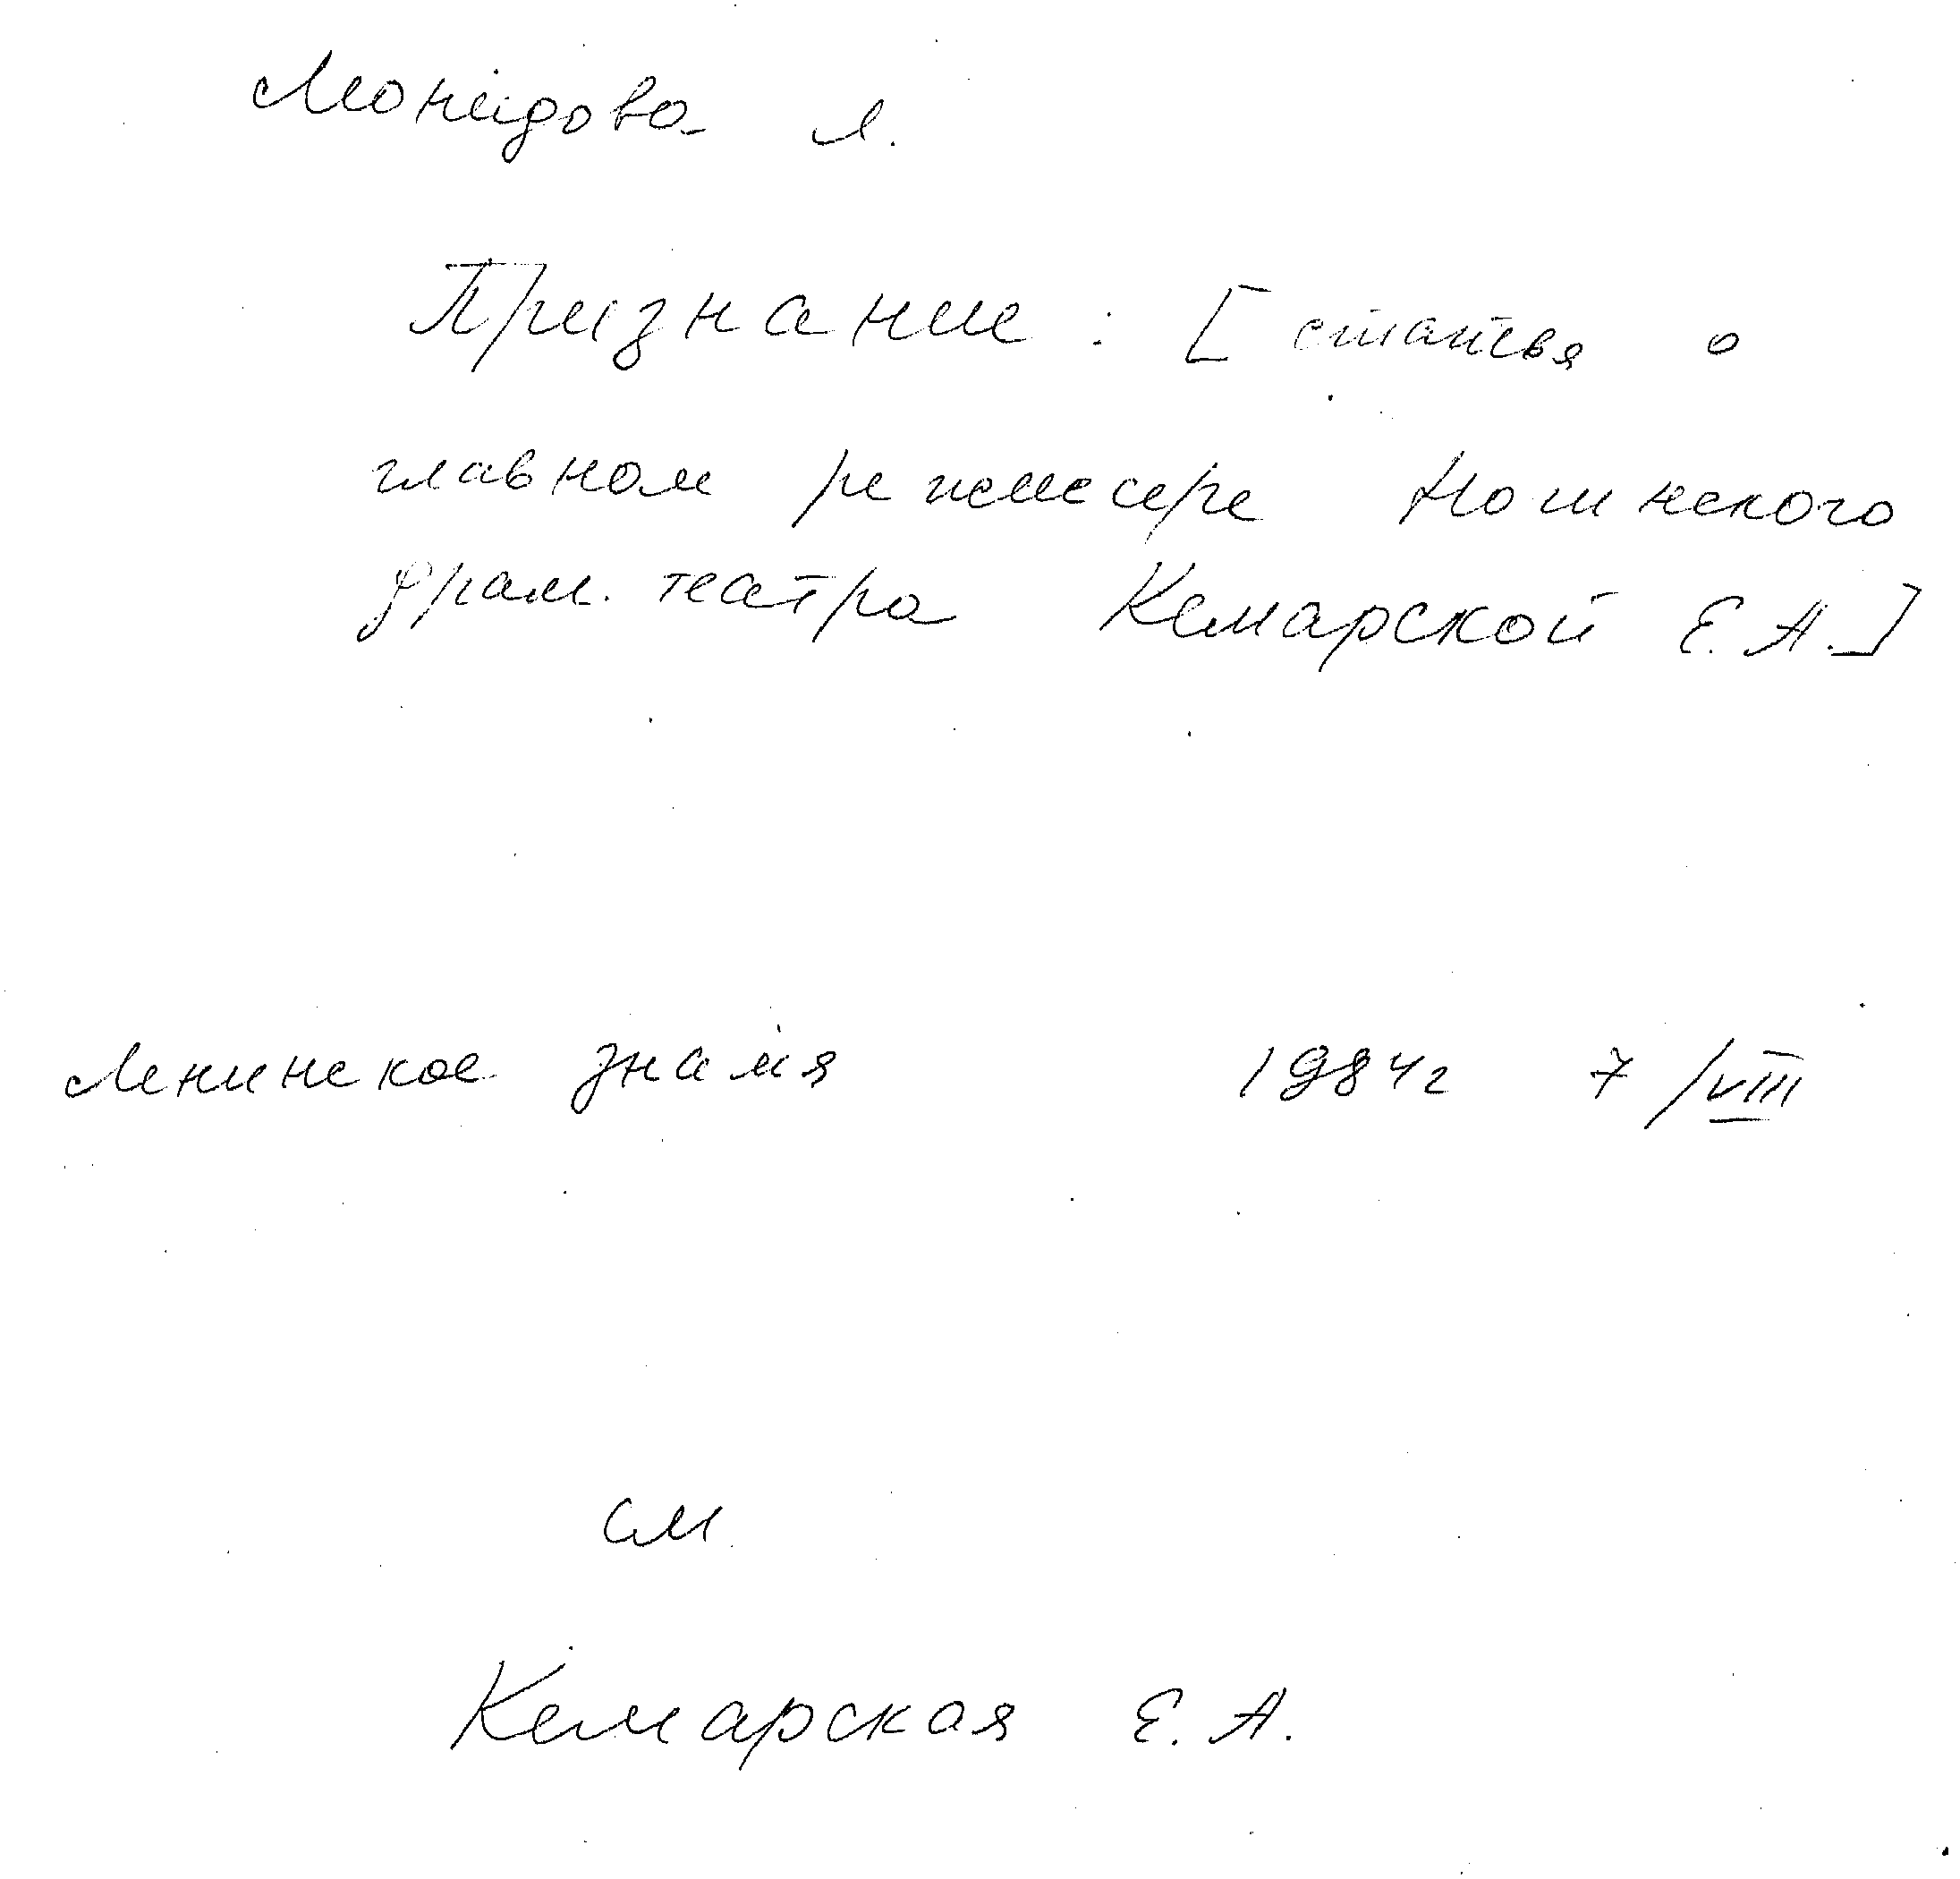 Леонидова Л.
Признание: [статья о
главном режиссере Ногинского
драм. театра Кемарской Е.А.]
Ленинское знамя 1984г 7/VIII
см.
Кемарская Е.А.